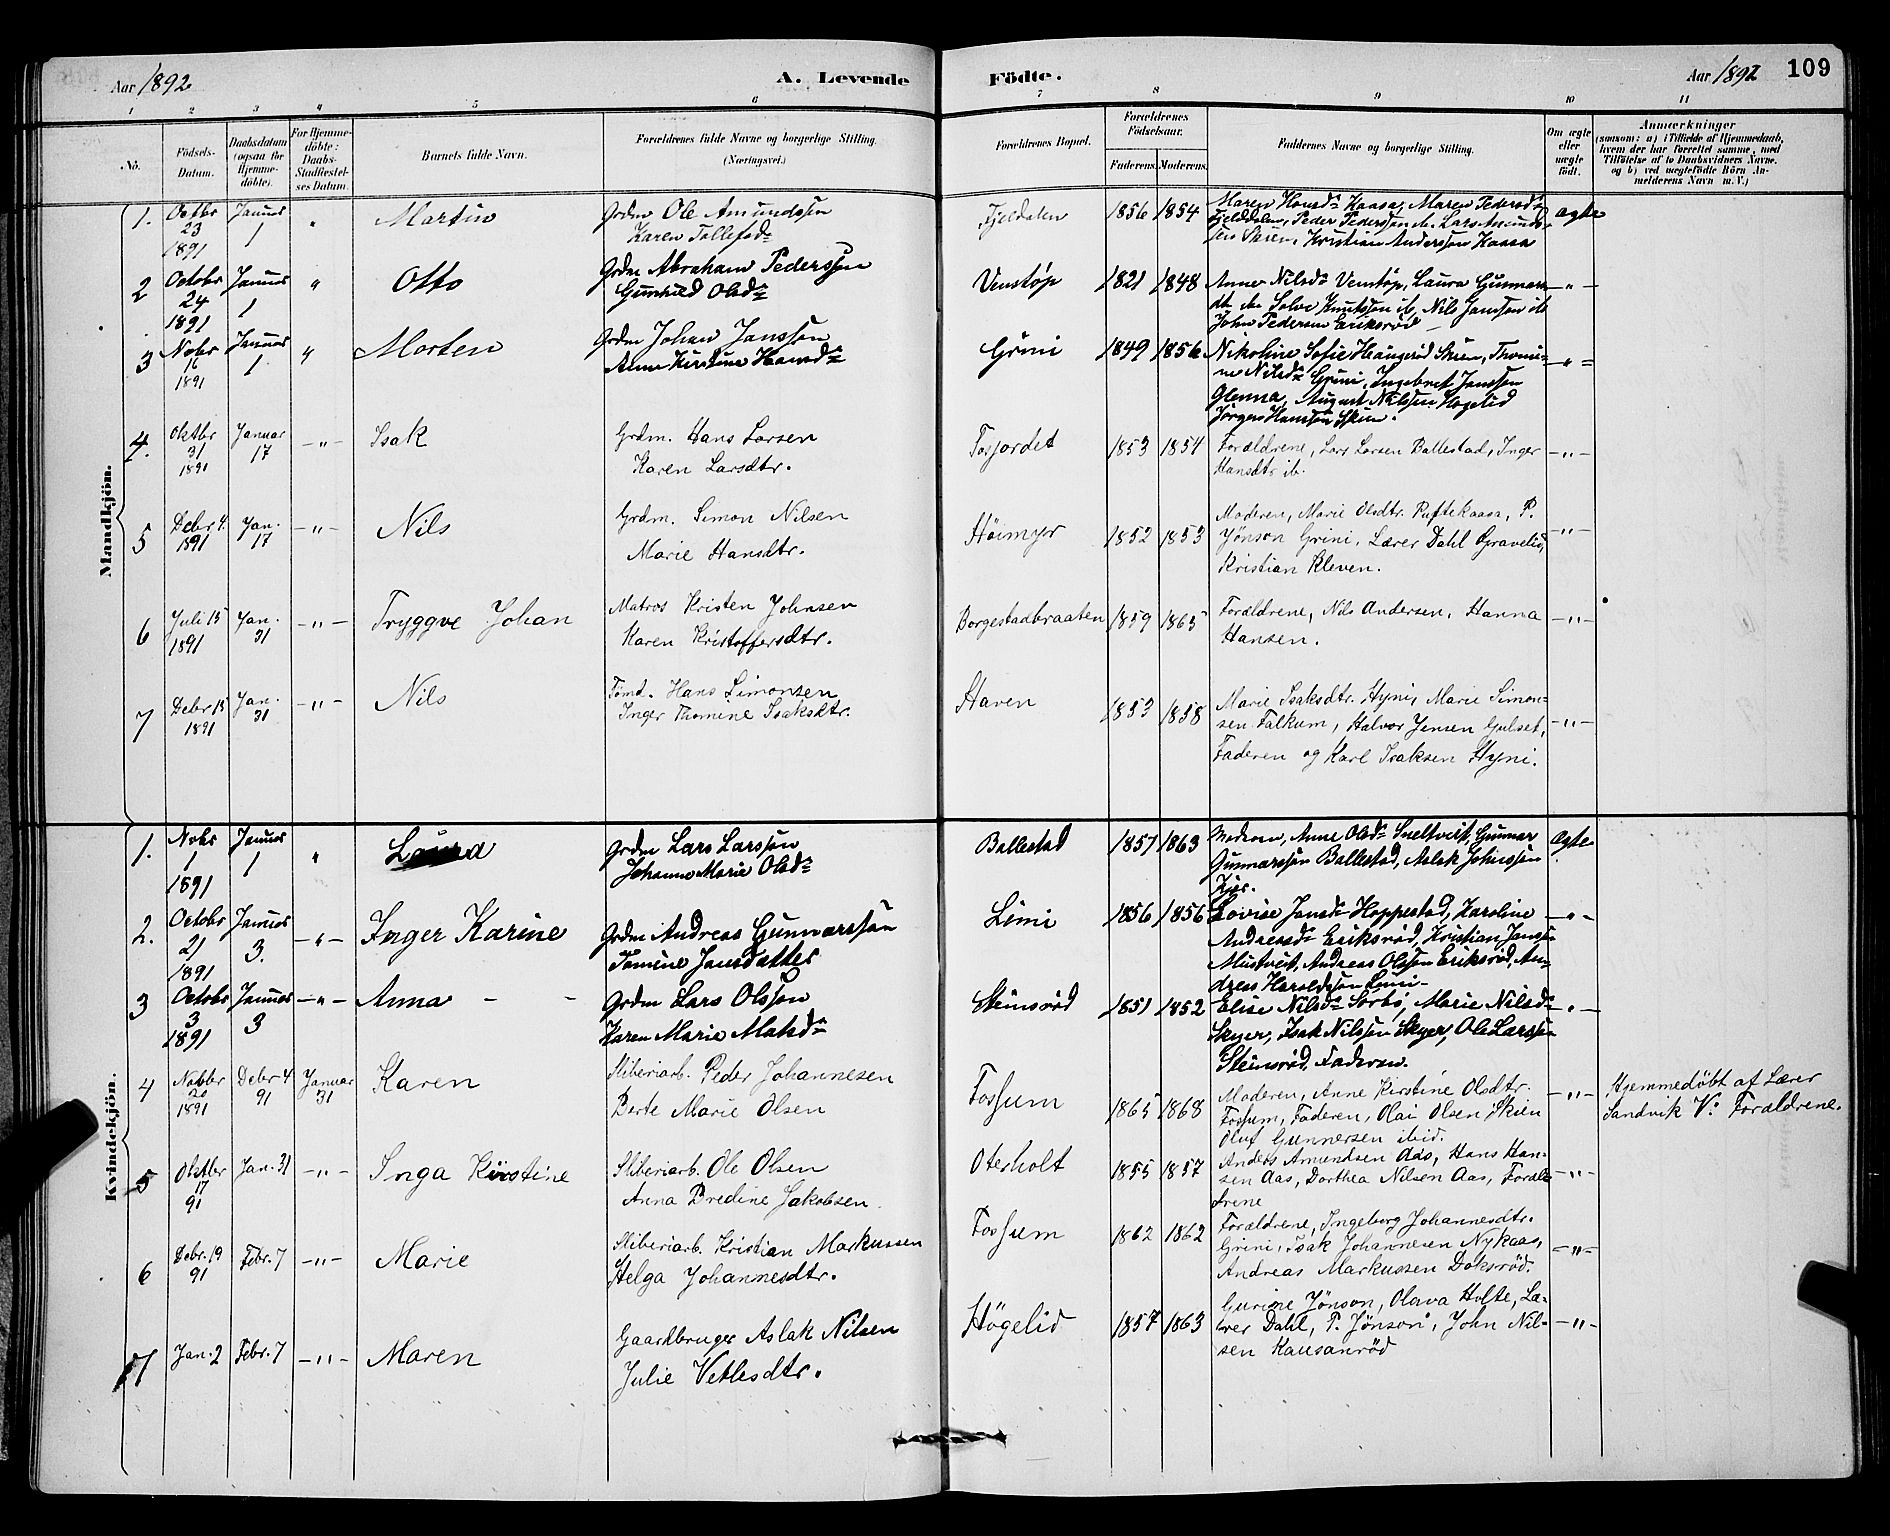 Aar 1892
A. Levende
Födte.
Aar 1892
109
1 2 3 4 5 6 7 8 9 10 11
No.
Födsels-
Datum.
Daabsdatum
(ogsaa for
Hjemme-
döbte).
For Hjemme-
döbte:
Daabs-
Stadfestel-
ses Datum.
Barnets fulde Navn.
Forældrenes fulde Navne og borgerlige Stilling.
(Næringsvei.)
Forældrenes Bopæl.
Forældrenes
Födselsaar.
Faderens. Moderens.
Faddernes Navne og borgerlige Stilling.
Om ægte
eller
uægte
födt.
Anmærkninger
(saasom: a) i Tilfælde af Hjemmedaab,
hvem der har forrettet samme, med
Tilföielse af to Daabsvidners Navne.
og b) ved uægtefödte Börn An-
melderens Navn m. V.)
Mandkjön.
1. Octbr 23 1891 Januar 1 " Martin
Grdm Ole Amundssen
Karen Tollefsdr
Fjeldalen 1856 1854
Maren Hansdr Kaasa, Maren Pedersdr
Fjelddalen, Peder Pederssen ib, Lars Amund-
sen Skien, Kristian Anderssen Kaasa
ægte
2 Octobr 24 1891 Januar 1 " Otto
Grdm Abraham Pederssen
Gunhild Olsdr
Venstöp 1821 1848
Anne Nilsdr Venstöp, Laura Gunnars-
dtr ib, Solve Knutssön ib, Nils Janssen ib
John Pedersen Eriksröd
- " -
3 Nobr 16 1891 Januar 1 " Morten
Grdm Johan Janssön
Anne Kirstine Hansdr
Gröni 1849 1856
Nikoline Sofie Haugeröd Skien, Thomi-
ne Nilsdr Grini, Ingebret Janssen
Glenna, August Nilssen Högelid
Jörgen Hanssen Skien.
- " -
4. Oktbr 31 1891 Januar 17 - " - Isak
Grdm. Hans Larsen
Karen Larsdtr.
Fosjordet 1853 1854
Forældrene, Lars Larsen Ballestad, Inger
Hansdtr ib.
- " -
5 Debr 4. 1891 Jan. 17 - " - Nils
Grdm. Simon Nilsen
Marie Hansdtr.
Höimyr 1852 1853
Moderen, Marie Olsdtr. Puftekaasa, P.
Jönson Grini, Lærer Dahl Gravelid,
Kristian Kleven.
- " -
6 Juli 15 1891 Jan. 31 - " - Tryggve Johan
Matros Kristen Johnsen
Karen Kristoffersdtr.
Borgestadbraaten 1859 1865
Forældrene, Nils Andersen, Hanna
Hansen.
- " -
7 Debr 15 1891 Jan. 31 - " - Nils
Tömd. Hans Simonsen
Inger Thomine Isaksdtr.
Haven 1853 1858
Marie Isaksdtr. Hyni, Marie Simon-
sen Falkum, Halvor Jensen Gulset,
Faderen og Karl Isaksen Hyni.
- " -
Kvindekjön.
1. Nobr 1 1891 Januar 1 " Laura
Grdm Lars Larssön
Johanne Marie Olsdr
Ballestad 1857 1863
Moderen, Anne Olsdr Sneltveit, Gunnar
Gunnarssön Ballestad, Aslak Johnssön
ægte
2. Octobr 21 1891 Januar 3. - " - Inger Karine
Grdm Andreas Gunnarssön
Tomine Jansdatter
Limi 1856 1856
Lovise Jansdr Hoppestad, Karoline
Andreasdr Eriksröd, Kristian Janssön
Mustveit, Andreas Olssön Eriksröd, An-
dreas Haraldssön Limi-
- " -
3 Octobr 3 1891 Januar 3 - " - Anna - -
Grdm Lars Olsson
Karen Marie Matsdr
Steinsröd 1851 1852
Elise Nilsdr Sorbö, Marie Nilsdr
Skyer, Isak Nilssön Skyer, Ole Larssön
Steinsröd, Faderen.
- " -
4 Nobbr 20 1891 Debr 4 91 Januar 31 Karen
Sliberiarb. Peder Johannesen
Berte Marie Olsen
Fossum 1865 1868
Moderen, Anne Kirstine Olsdtr.
Fossum, Faderen, Olai Olsen Skien
Oluf Gunnersen ibid.
- " -
Hjemmedöbt af Lærer
Sandvik V: Forældrene.
5 Oktbr 17 91 Jan. 31 - " - Inga Kirstine
Sliberiarb. Ole Olsen
Anna Bredine Jakobsen
Oterholt 1855 1857
Anders Amundsen Aas, Hans Han-
sen Aas, Dorthea Nilsen Aas, Foræl-
drene
- " -
6 Debr. 19 91 Febr. 7 - " - Marie
Sliberiarb. Kristian Markussen
Helga Johannesdtr.
Fossum 1862 1862
Forældrene, Ingeborg Johannesdtr.
Grini, Isak Johannesen Nykaas,
Andreas Markussen Doksröd.
- " -
7 Jan. 2 Febr. 7 - " - Maren
Gaardbruger Aslak Nilsen
Julie Vetlesdtr.
Högelid 1857 1863
Gurine Jönson, Olava Holte, Læ-
rer Dahl, P. Jönson, John Nil-
sen Kausanröd
- " -